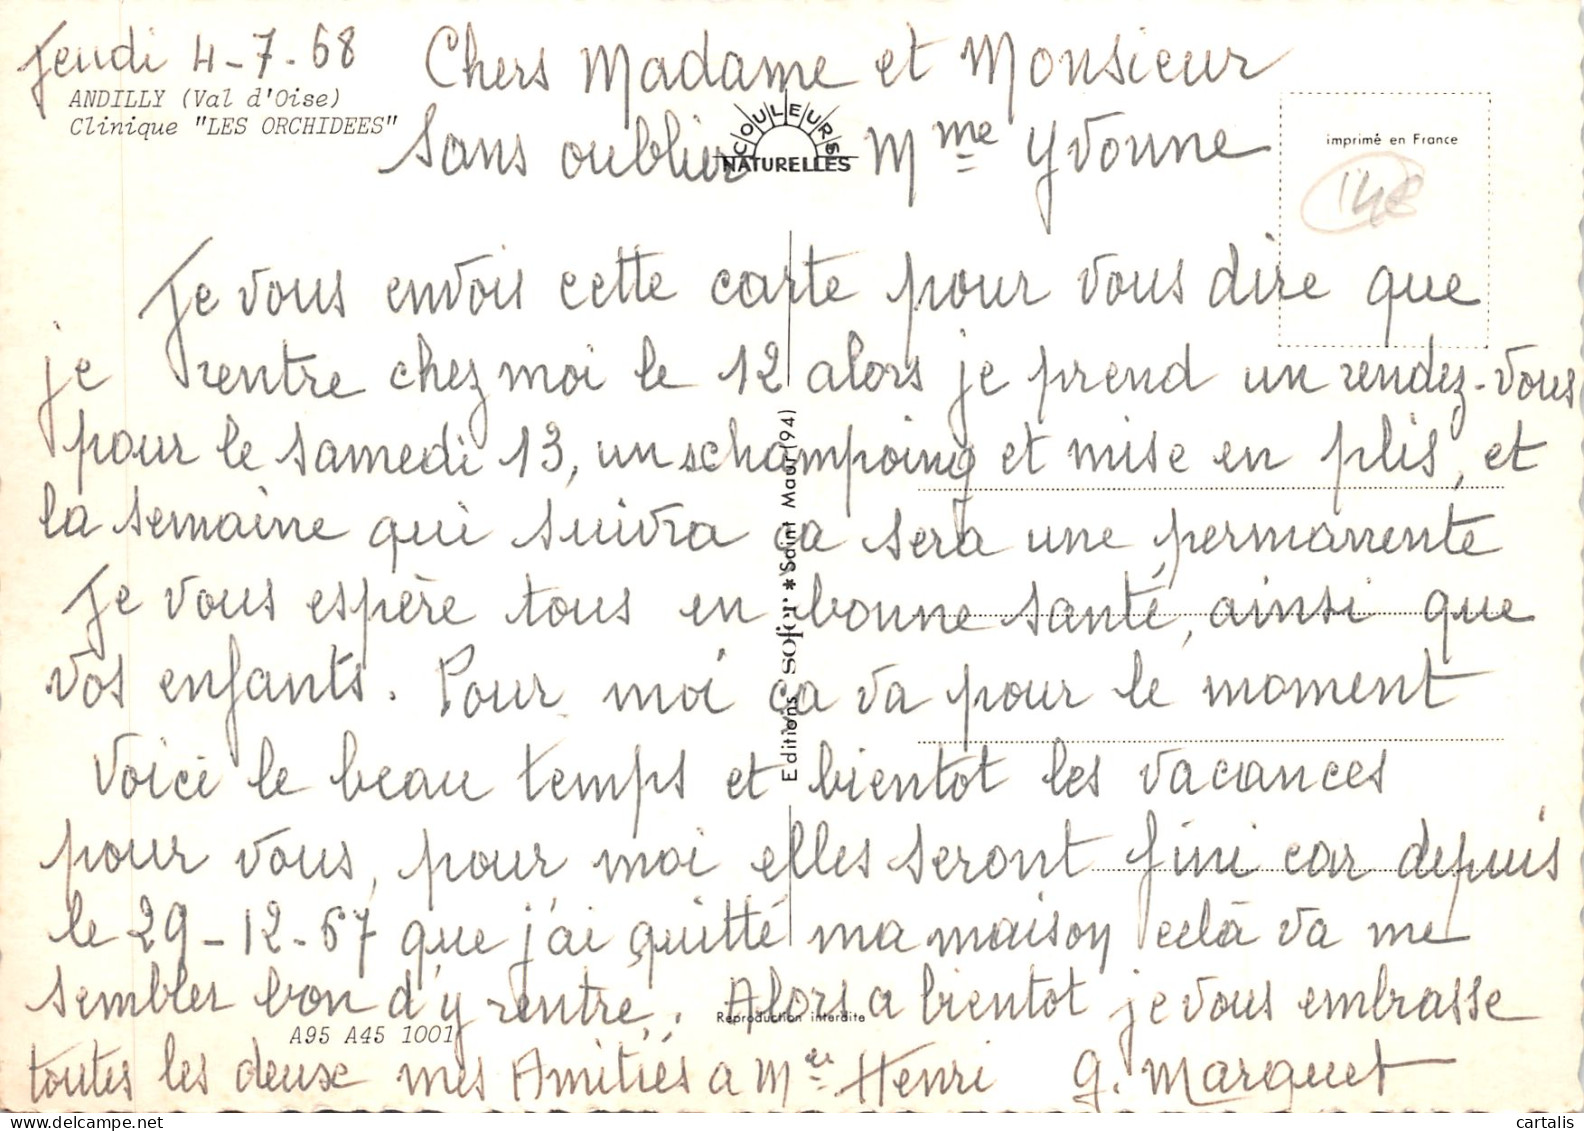 Jeudi 4-7-68
Chers Madame et Monsieur
ANDILLY (Val d'Oise)
Clinique "LES ORCHIDEES"
COULEURS
NATURELLES
imprimé en France
148
Sans oublier Mme Yvonne
Je vous envois cette carte pour vous dire que
je rentre chez moi le 12 alors je prend un rendez-vous
pour le samedi 13, un schampoing et mise en plis, et
la semaine qui suivra ça sera une permanente
Je vous espère tous en bonne santé, ainsi que
vos enfants. Pour moi ça va pour le moment
Voici le beau temps et bientot les vacances
pour vous, pour moi elles seront fini car depuis
le 29-12-67 que j'ai quitté ma maison celà va me
sembler bon d'y rentré. Alors a bientot je vous embrasse
toutes les deux mes Amitiés a Mr Henri G. Marquet
Editions sofer * Saint Maur (94)
Reproduction interdite
A95 A45 1001
cartalis